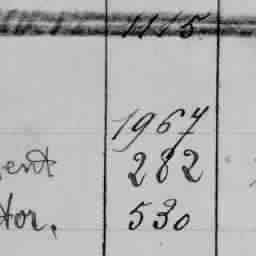 1115
1967
ent 282
tor. 530